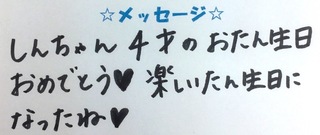 ☆メッセージ☆
しんちゃん 4才のおたん生日
おめでとう♥ 楽しいたん生日に
なったね♥